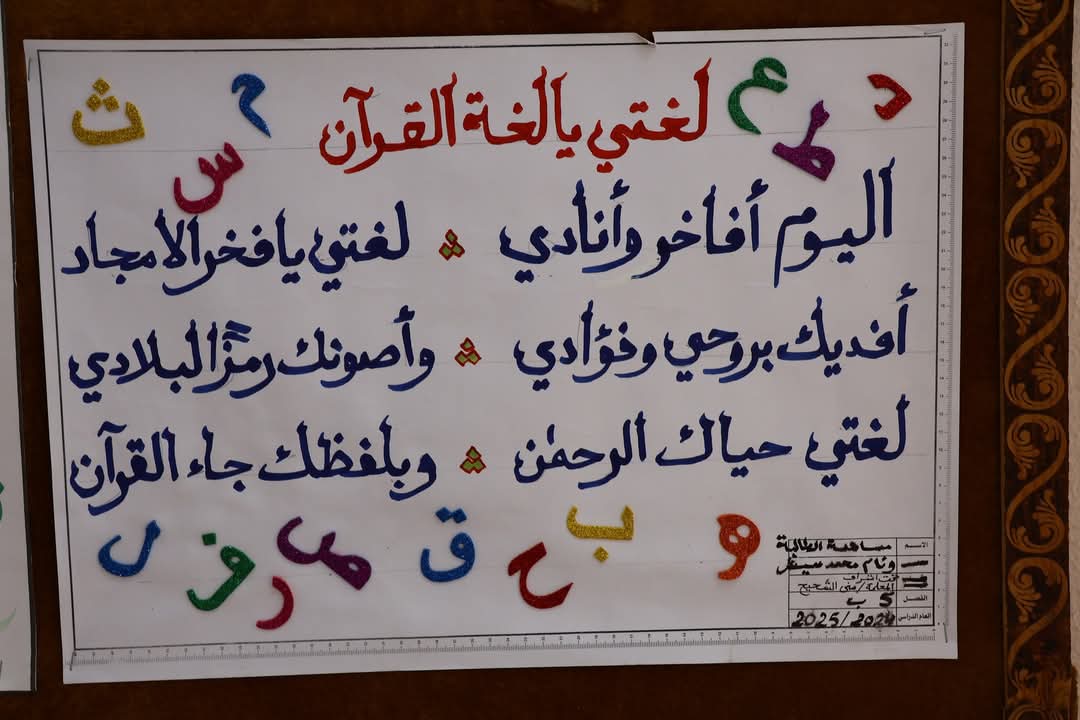 لغتي يا لغة القرآن
اليوم أفاخر وأنادي ** لغتي يا فخر الامجاد
أفديك بروحي وفؤادي ** وأصونك رمزًا لبلادي
لغتي حياك الرحمٰن ** وبلفظك جاء القرآن
د
ع
م
ث
س
ل
ف
ر
ص
ق
ح
ب
ه
الاسم مساهمة الطالبة
وئام محمد
تحت اشراف
المعلمة / منى الشحيح
الفصل 5 ب
العام الدراسي 2025/2024